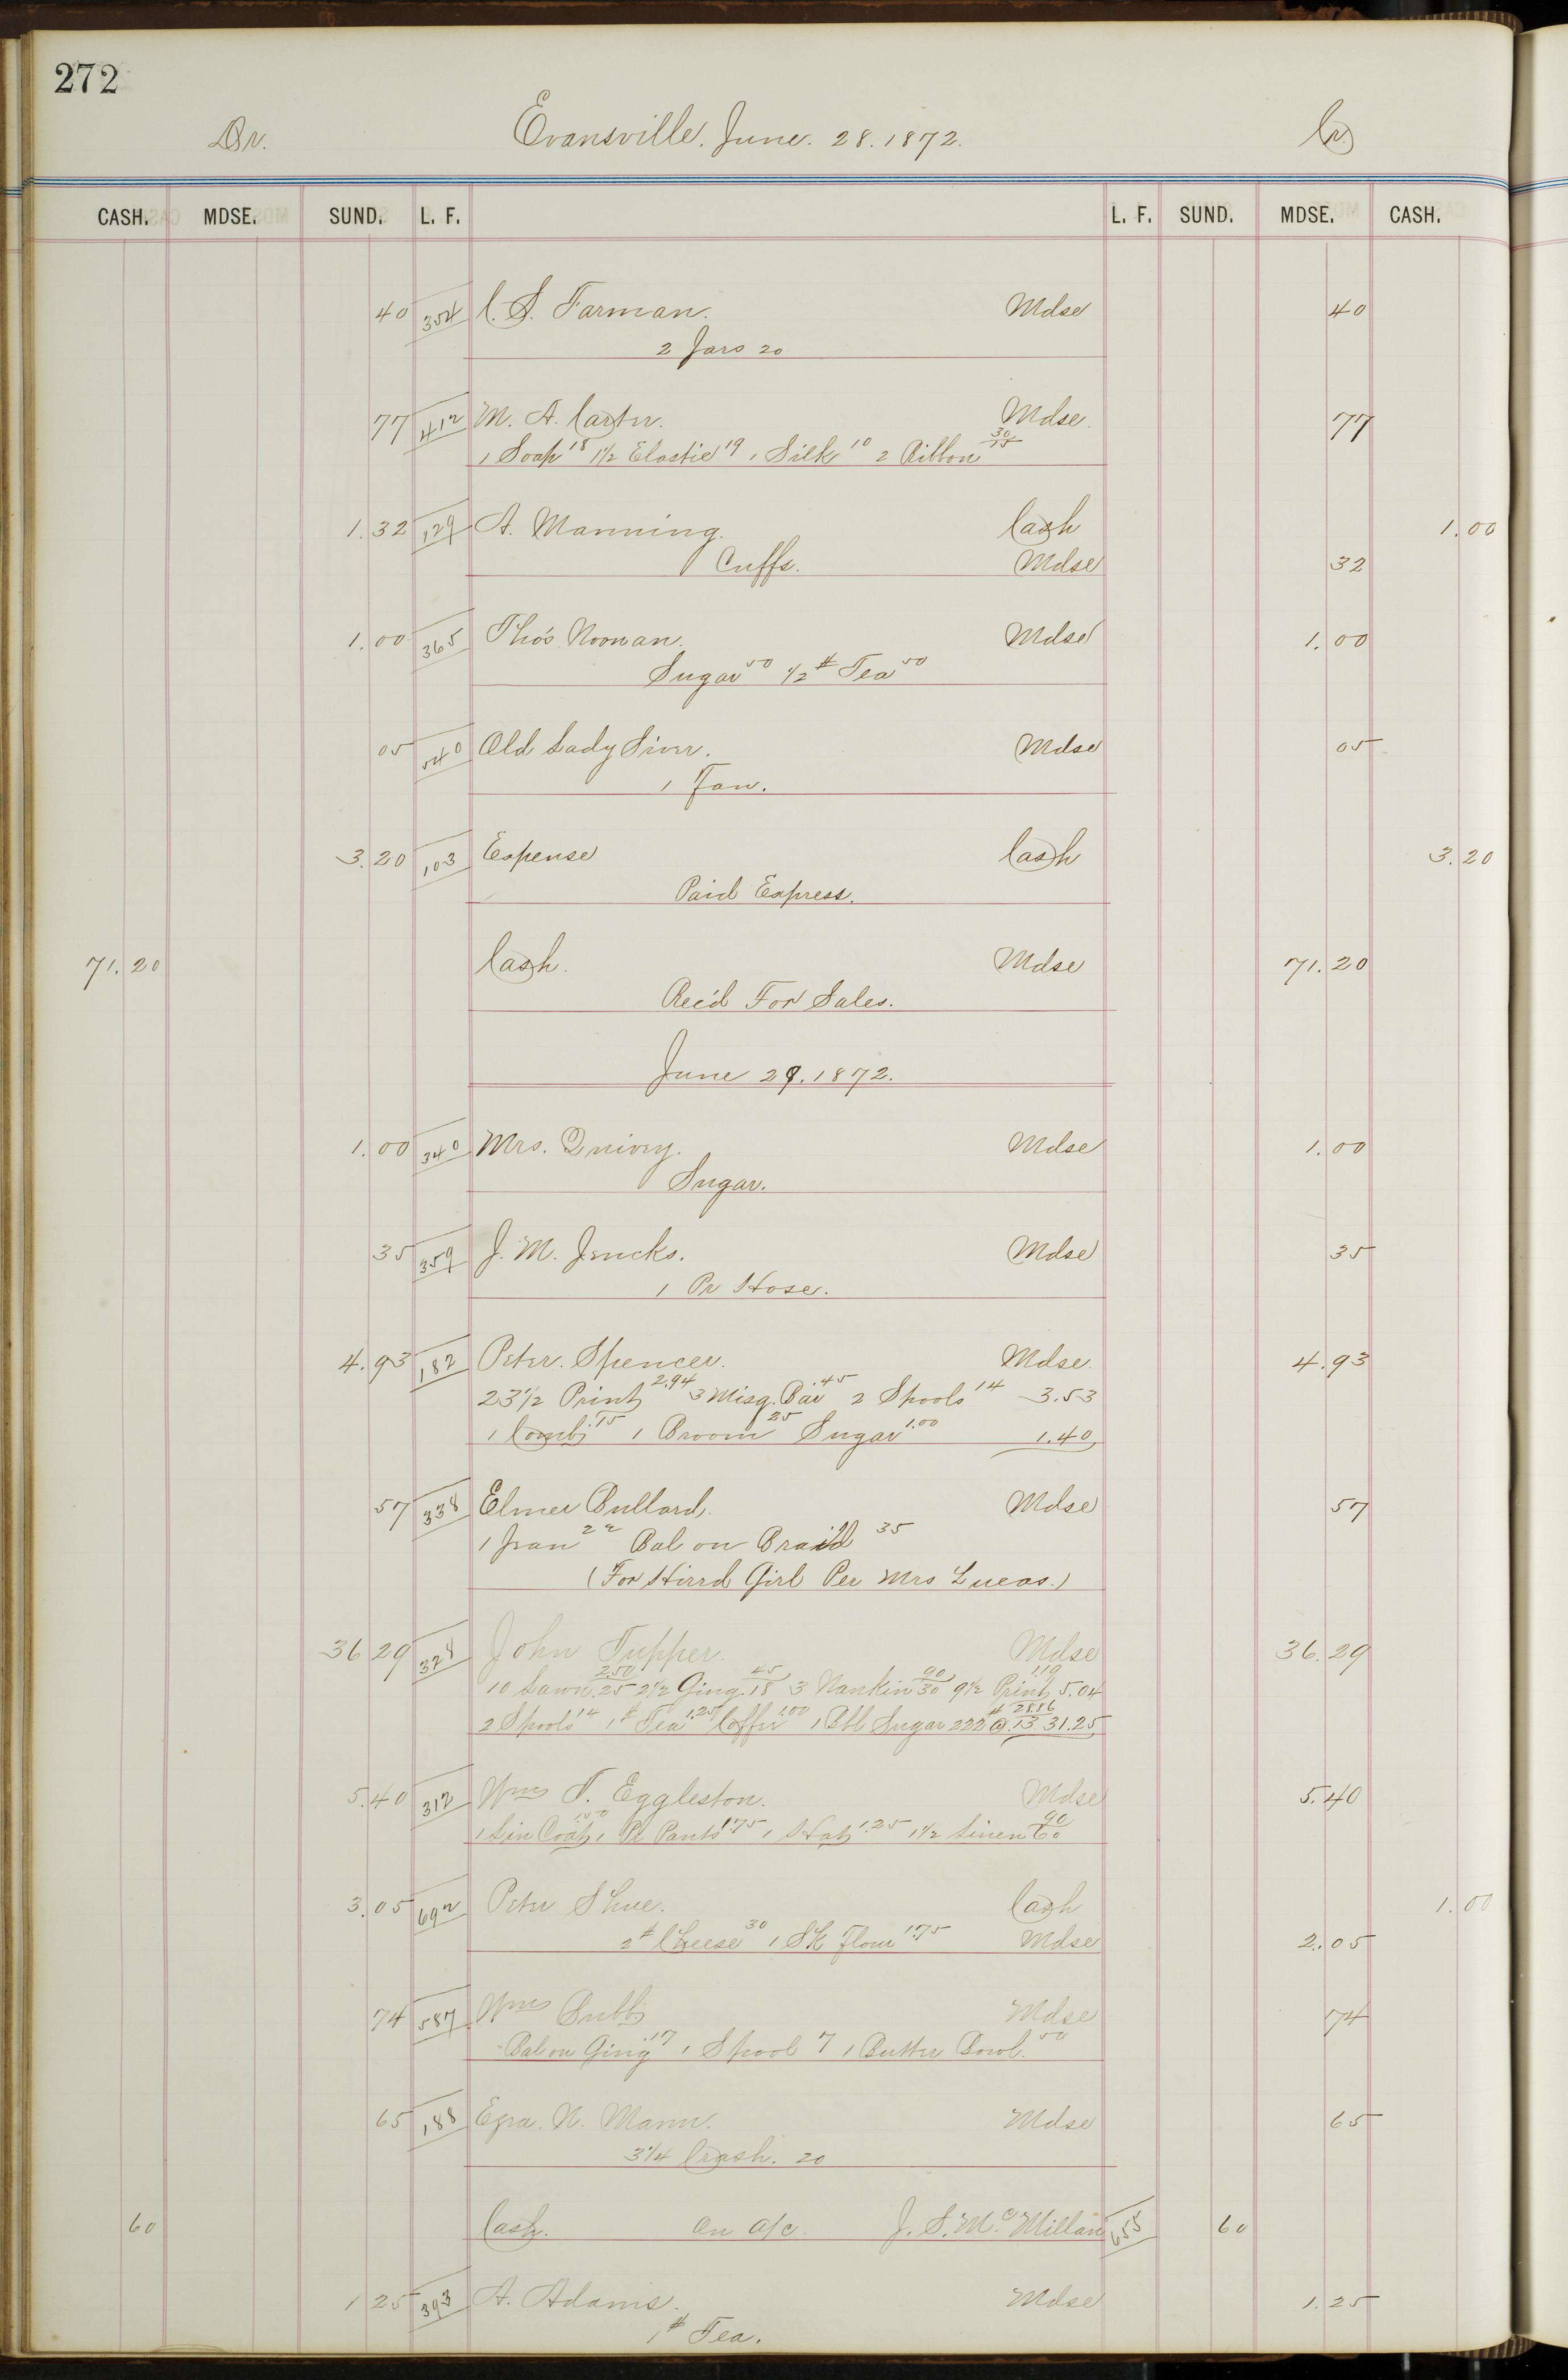 272
Dr. Evansville. June. 28. 1872. Cr
CASH. MDSE. SUND. L. F. L. F. SUND. MDSE. CASH.
40 354 C. S. Farman. Mdse 40
2 Jars 20
77 412 M. A. Carter. Mdse. 77
1 Soap 18 1 1/2 Elastic 19 1 Silk 10 2 Ribbon 30/15
1.32 129 A. Manning. Cash 1.00
Cuffs. Mdse 32
1.00 365 Thos Noonan. Mdse 1.00
Sugar 50 1/2 # Tea 50
05 540 Old Lady Siver. Mdse 05
1 Fan.
3.20 103 Expense Cash 3.20
Paid Express.
71.20 Cash. Mdse 71.20
Rec'd For Sales.
June 29. 1872.
1.00 340 Mrs. Quivey. Mdse 1.00
Sugar.
35 359 J. M. Jencks. Mdse 35
1 Pr Hose.
4.93 182 Peter. Spencer. Mdse. 4.93
23 1/2 Print 2.94 3 Misq. Bar .45 2 Spools 14 3.53
1 Comb .15 1 Broom 25 Sugar 1.00 1.40
57 338 Elmer Bullard. Mdse 57
1 Jean 22 Bal on Braid 35
(For Hired Girl Per Mrs Lucas.)
36 29 328 John Tupper. Mdse 36.29
10 Lawn 2.50/.25 2 1/2 Ging. 45/18 3 Nankin 90/30 9 1/2 Print 1.19 5.04
2 Spools 14 1 # Tea 1.25 Coffee 1.00 1 Bbl Sugar 222 # @ 28.86/.13 31.25
5.40 312 Wm T. Eggleston. Mdse 5.40
1 Lin Coat 1.50 1 Pr Pants 1.75 1 Hat 1.25 1 1/2 Linen 90/60
3.05 692 Peter Shue. Cash 1.00
2 # Cheese 30 1 SK Flour 1.75 Mdse 2.05
74 587 Wm Bubb Mdse 74
Bal on Ging .17 1 Spool 7 1 Butter Bowl. 50
65 188 Ezra. N. Mann. Mdse 65
3 1/4 Crash. 20
60 Cash. On a/c. J. S. McMillan 655 60
1 25 393 A. Adams. Mdse 1.25
1 # Tea.